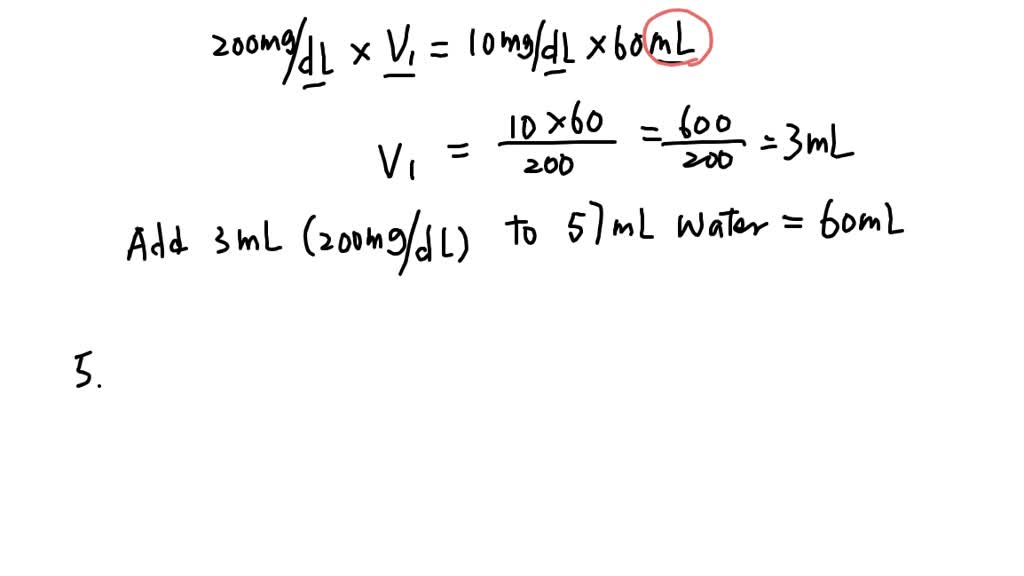 200mg/dL × V₁ = 10mg/dL × 60mL
V₁ = 10×60/200 = 600/200 = 3mL
Add 3mL (200mg/dL) to 57mL water = 60mL
5.